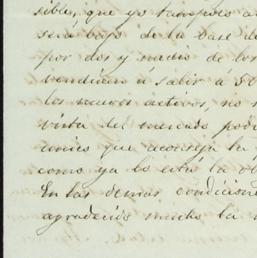 sible, que yo tampoco a
será bajo de la base de
por dos y medio de los
vendrían a salir á 50
los nuevos activos, no
vista del mercado pod
que aconseja la
como ya lo está la
En las demas condicione
agradecido mucho la